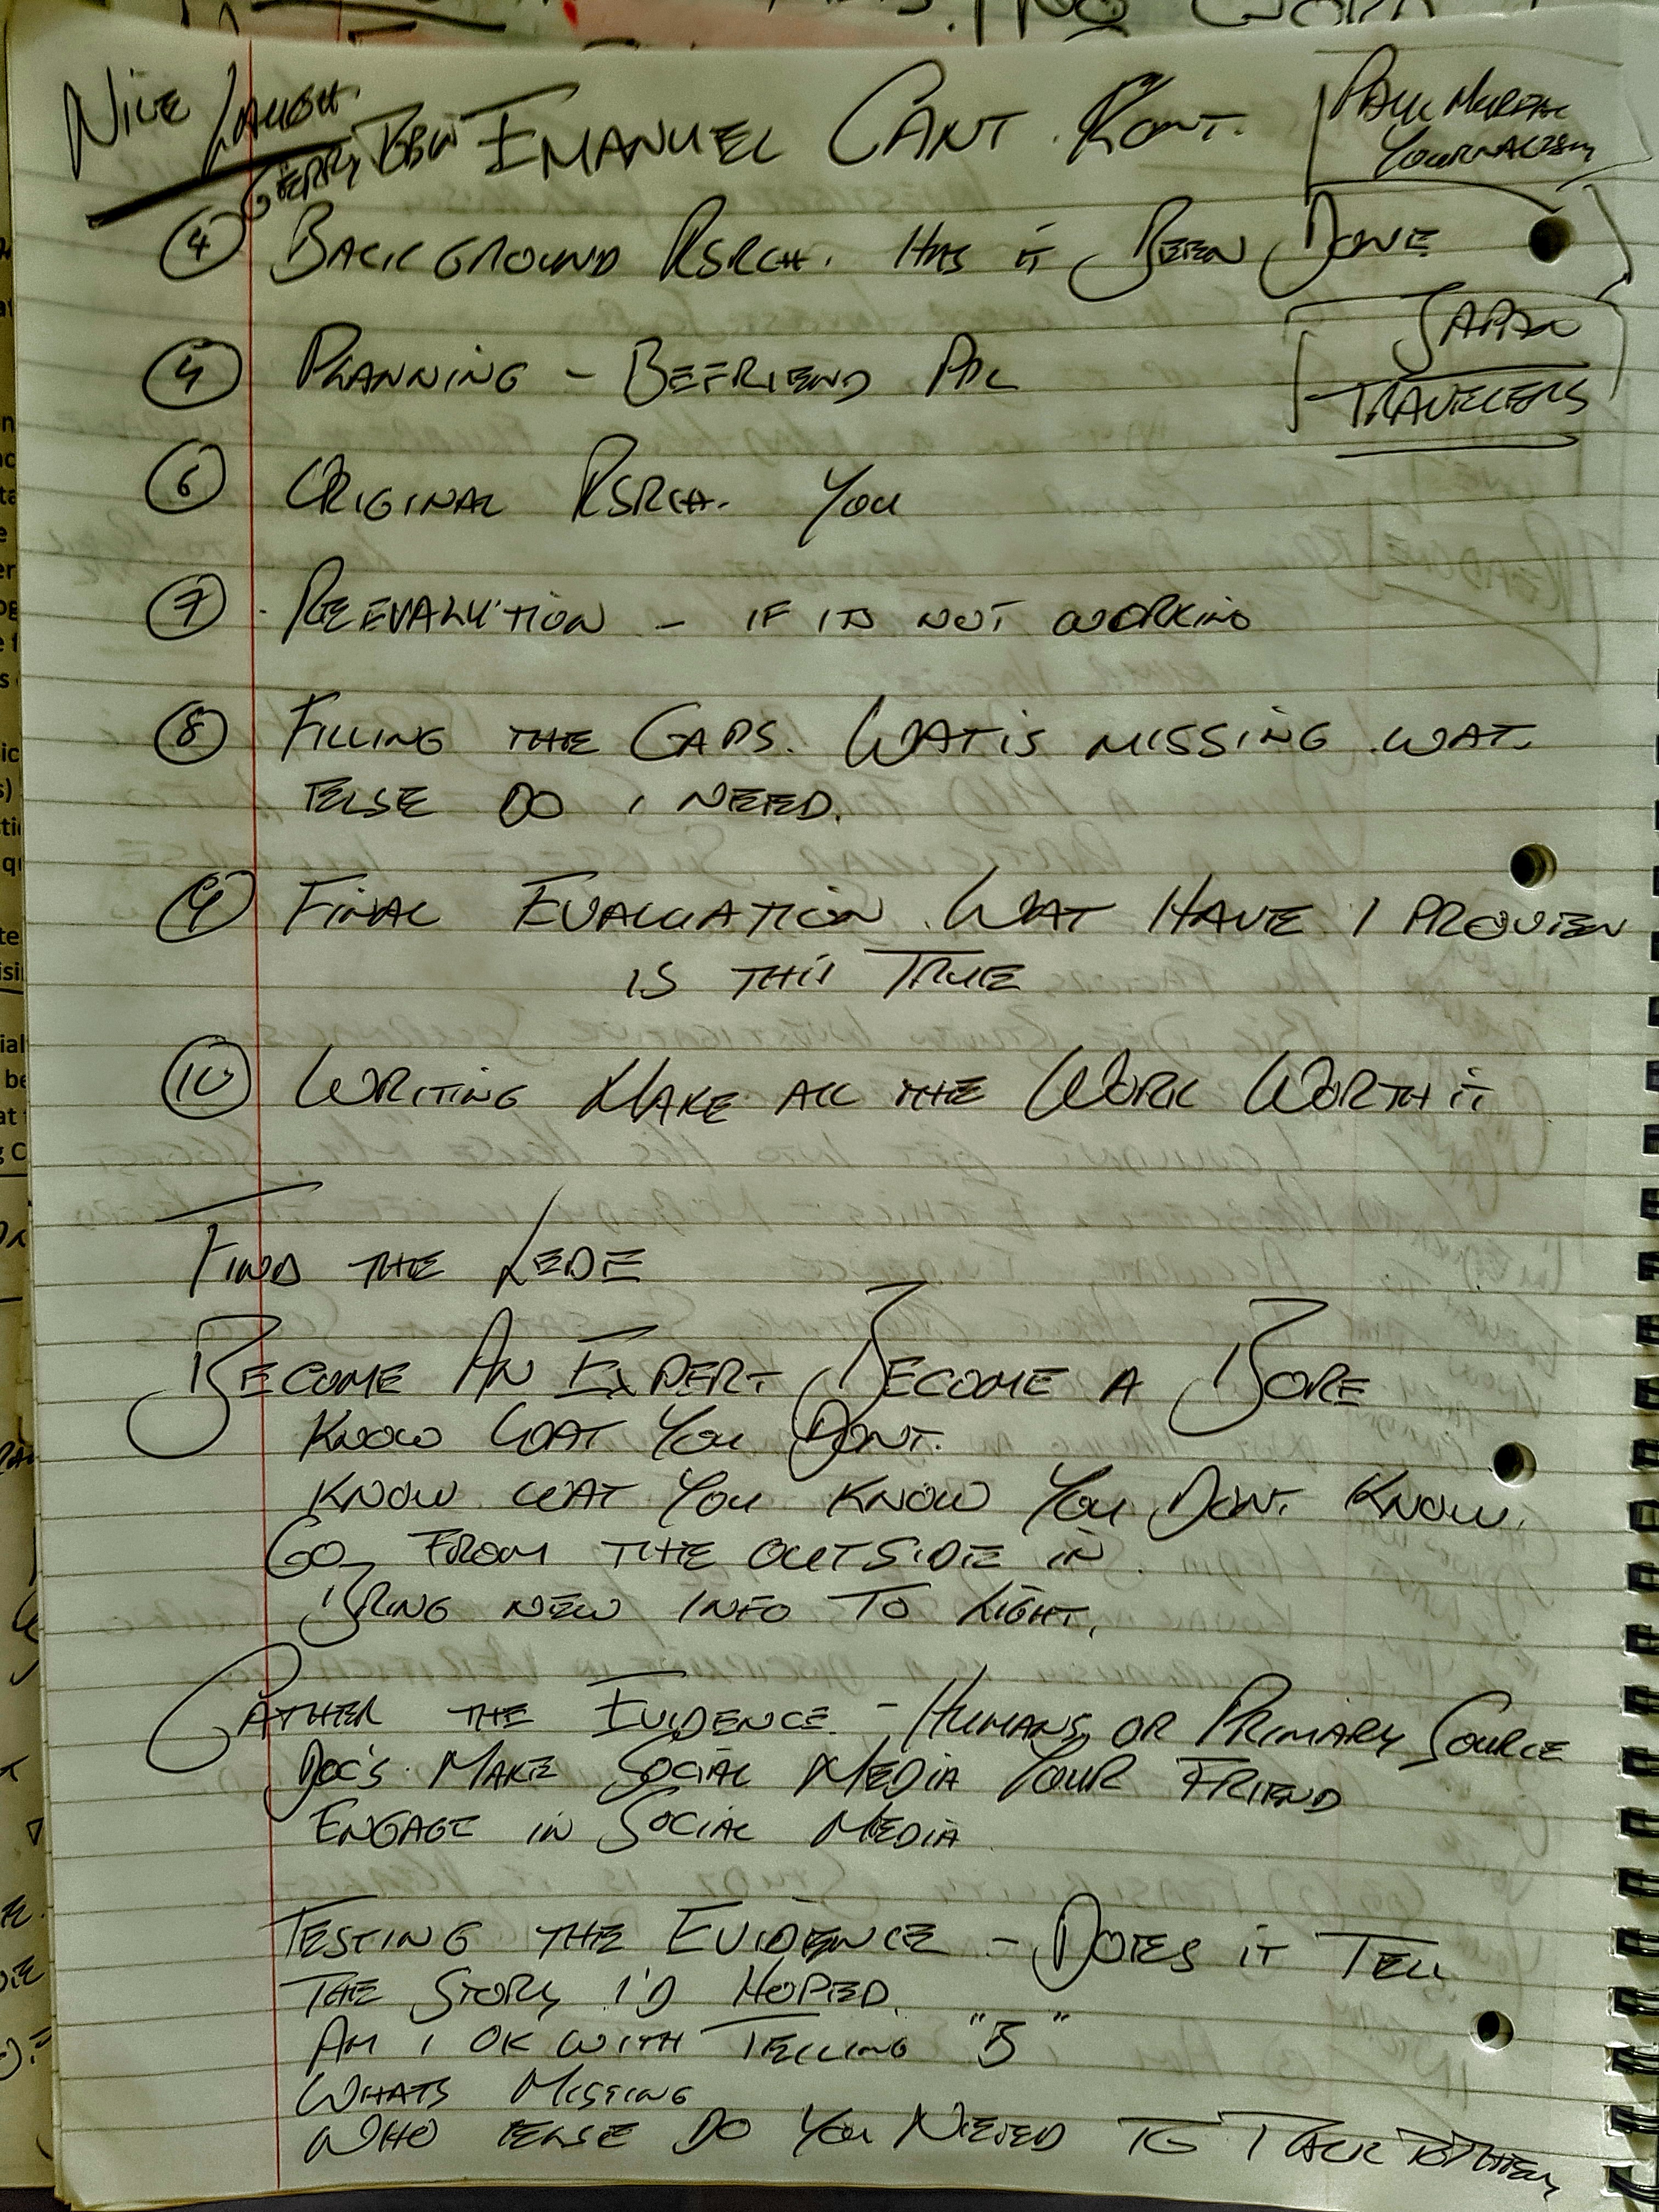 NICE LAUGH
GERRY BBW EMANUEL CANT. KANT.
PAUL MURPHY
JOURNALISM
④ BACKGROUND RSRCH. HAS IT BEEN DONE
JAPAN
TRAVELLERS
⑤ PLANNING - BEFRIEND ALL
⑥ ORIGINAL RSRCH. YOU
⑦ REEVALUTION - IF ITS NOT WORKING
⑧ FILLING THE GAPS. WAT IS MISSING. WAT
ELSE DO I NEED.
⑨ FINAL EVALUATION. WAT HAVE I PROVIEN
IS THIS TRUE
⑩ WRITING MAKE ALL THE WORK WORTH IT
FIND THE LEDE
BECOME AN EXPERT BECOME A BORE
KNOW WAT YOU DONT.
KNOW WAT YOU KNOW YOU DONT KNOW.
GO FROM THE OUTSIDE IN.
BRING NEW INFO TO LIGHT.
GATHER THE EVIDENCE - HUMANS OR PRIMARY SOURCE
DOC'S. MAKE SOCIAL MEDIA YOUR FRIEND
ENGAGE IN SOCIAL MEDIA
TESTING THE EVIDENCE - DOES IT TELL
THE STORY I'D HOPED.
AM I OK WITH TELLING "B"
WHATS MISSING
WHO ELSE DO YOU NEED TO TALK TO THEM